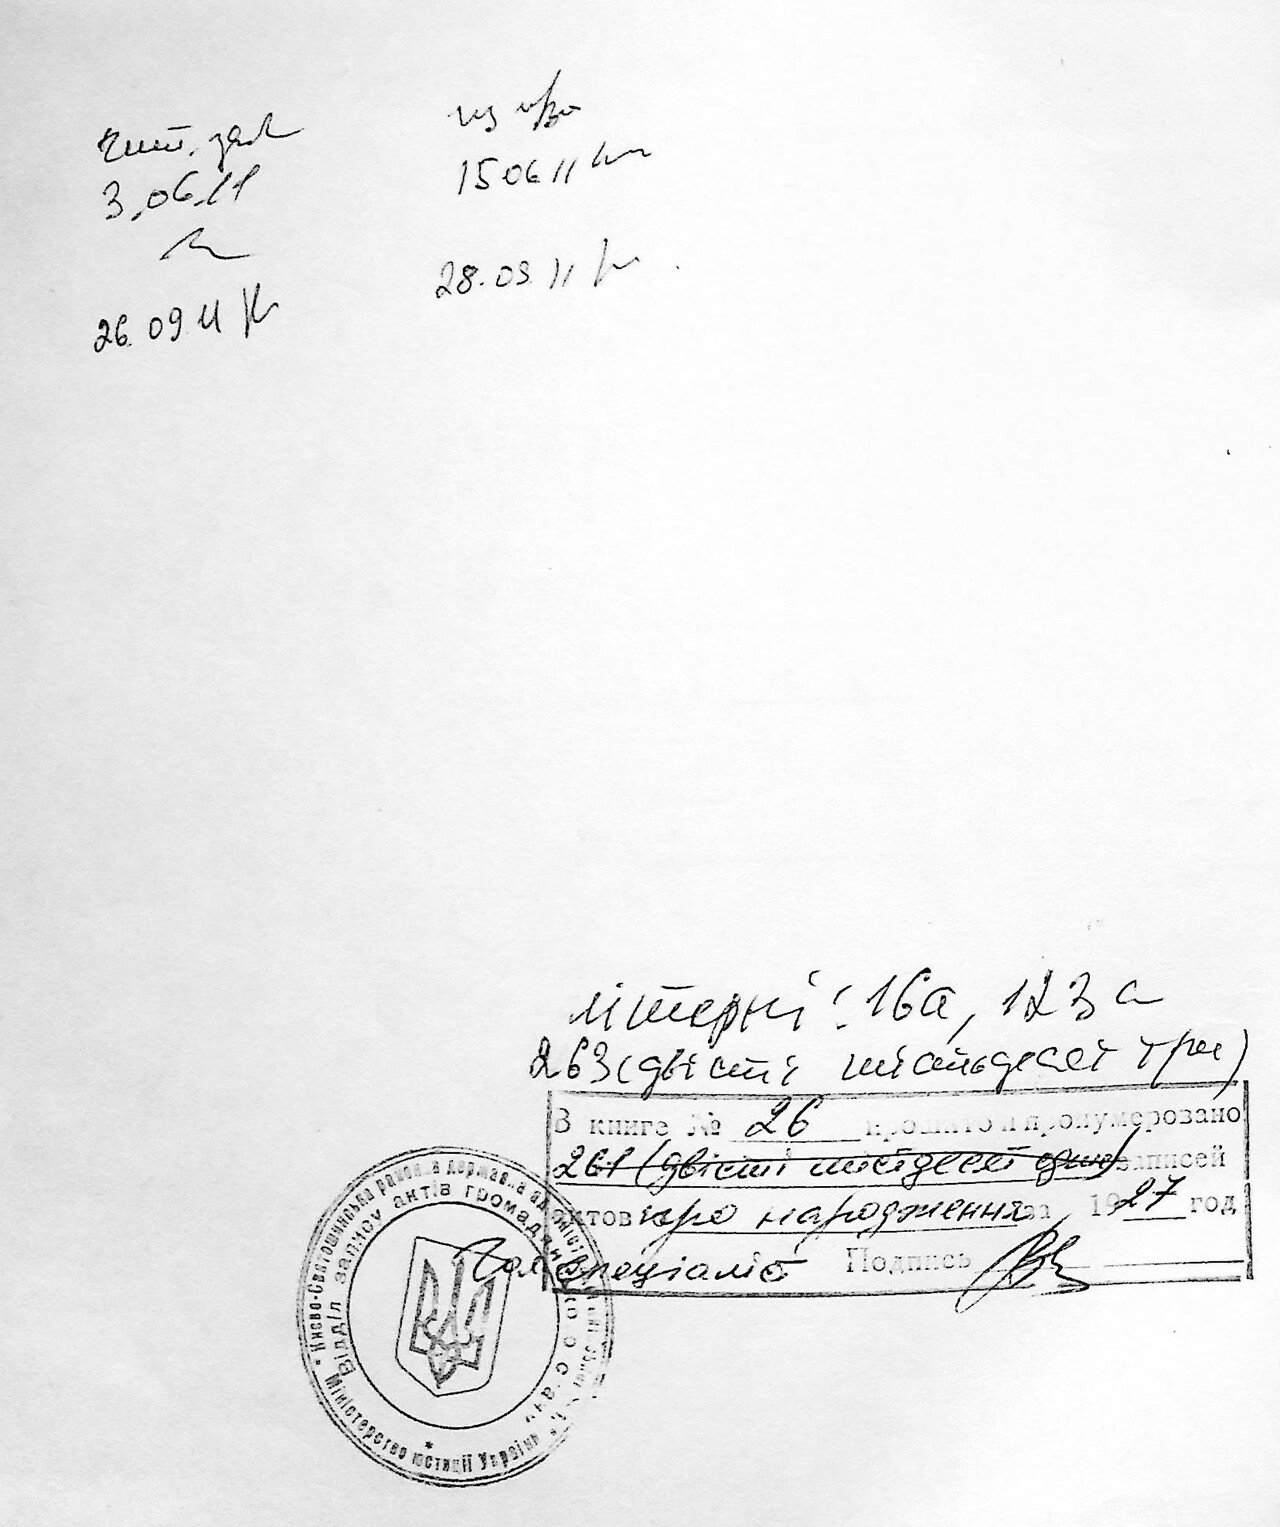 чит. зал
3.06.11
26.09.11
15 06 11
28.09.11
літерні: 16а, 123а
263 (двісті шістьдесят три)
В книге № 26 прошито и пронумеровано
261 (двісті шістдесят один) записей
актов про народження за 1927 год
Гол. спеціаліст Подпись
* Києво-Святошинська районна державна адміністрація
Відділ запису актів громадянського стану
Міністерство юстиції України *